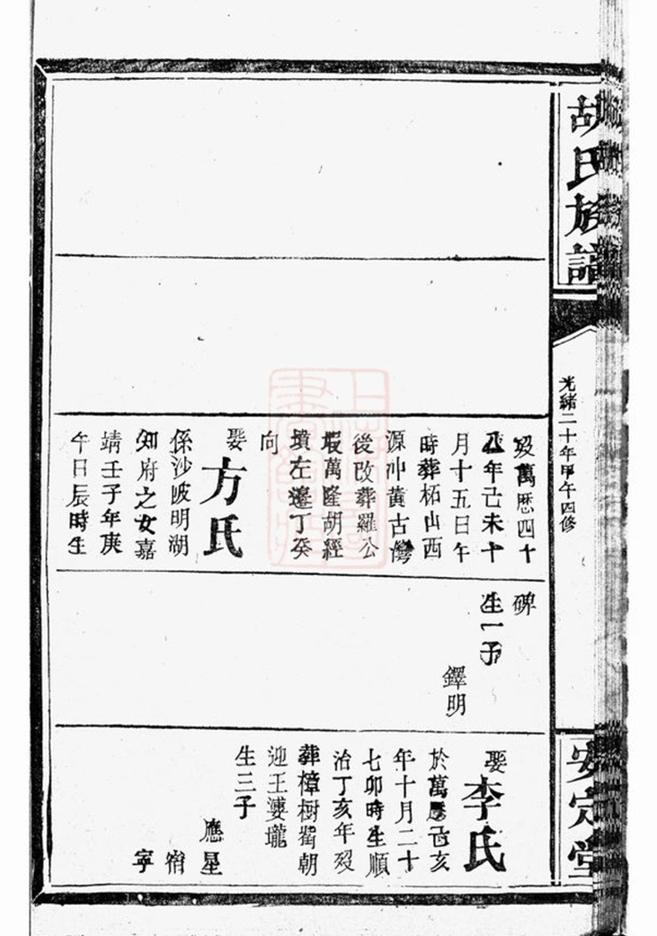 胡氏族譜
光緒二十年甲午四修
安定堂
歿萬歷四十
七年己未十
月十五日午
時葬柘山西
源冲黄古灣
後改葬羅公
塅萬隆胡經
墳左邊丁癸
向
娶
方氏
係沙陂明湖
知府之女嘉
靖壬子年庚
午日辰時生
碑
生一子
鐸明
娶
李氏
於萬歷己亥
年十月二十
七卯時生順
治丁亥年歿
葬樟樹嶲朝
迎王婆壠
生三子
應星
宿
寧